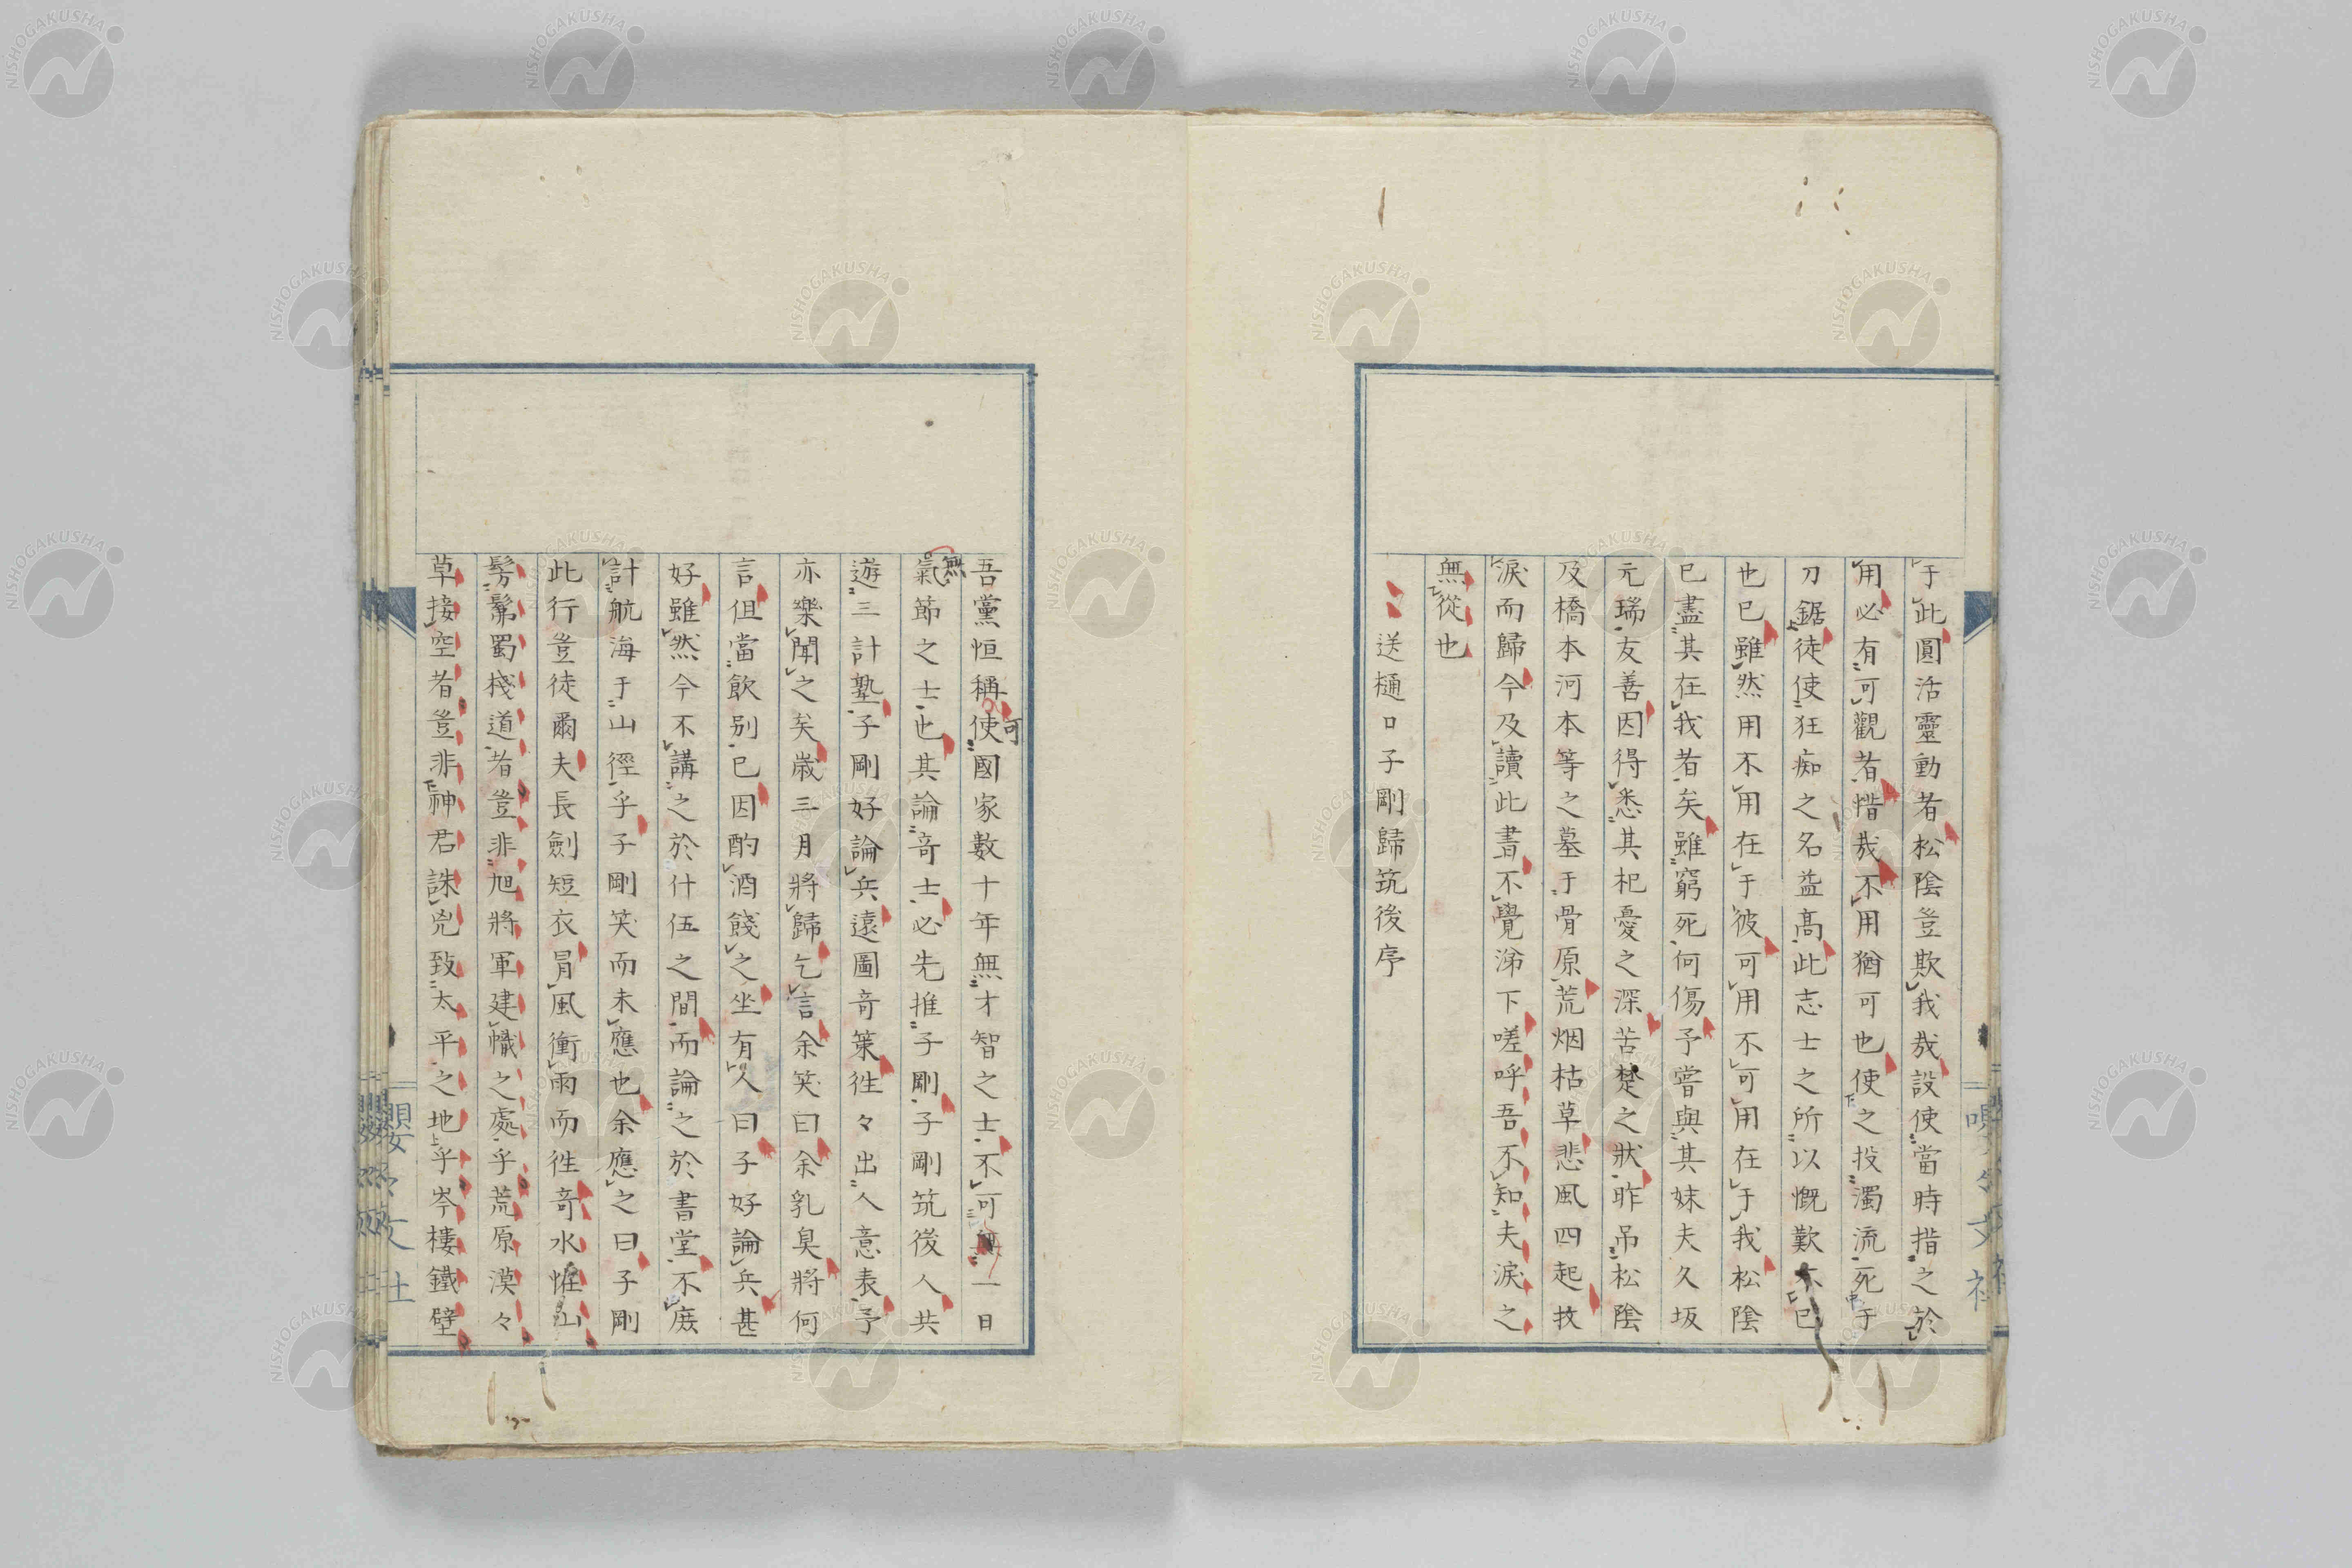 于此圓活靈動者松陰豈欺我哉設使當時措之於
用必有可觀者惜哉不用猶可也使之投濁流死于
刀鋸徒使狂痴之名益高此志士之所以慨歎不已
也已雖然用不用在于彼可用不可用在于我松陰
已盡其在我者矣雖窮死何傷予嘗與其妹夫久坂
元瑞友善因得悉其杞憂之深苦楚之狀昨吊松陰
及橋本河本等之墓于骨原荒烟枯草悲風四起抆
淚而歸今及讀此書不覺涕下嗟呼吾不知夫淚之
無從也
送樋口子剛歸筑後序
吾黨恒稱可使國家數十年無才智之士不可一日
無氣節之士也其論奇士必先推子剛子剛筑後人共
遊三計塾子剛好論兵遠圖奇策徃々出人意表予
亦樂聞之矣歲三月將歸乞言余笑曰余乳臭將何
言但當飲別已因酌酒餞之坐有人曰子好論兵甚
好雖然今不講之於什伍之間而論之於書堂不庶
計航海于山徑乎子剛笑而未應也余應之曰子剛
此行豈徒爾夫長劍短衣冐風衝雨而徃奇水惟山
髣髴蜀棧道者豈非旭將軍建幟之處乎荒原漠々
草接空者豈非神君誅兇致太平之地乎岑樓鐵壁
嚶々文社
嚶々文社
NISHOGAKUSHA